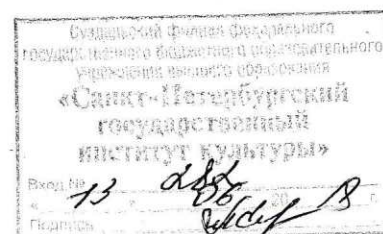 Суздальский филиал федерального
государственного бюджетного образовательного
учреждения высшего образования
«Санкт-Петербургский
государственный
институт культуры»
Вход №
« 13 » 06 20 18 г.
Подпись